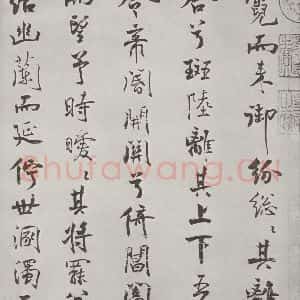 霓而来御紛總〻其離
合兮斑陸離其上下吾
令帝閽開關兮倚閶闔
而望予時曖〻其將罷
結幽蘭而延佇世溷濁而
Shufawang.CN